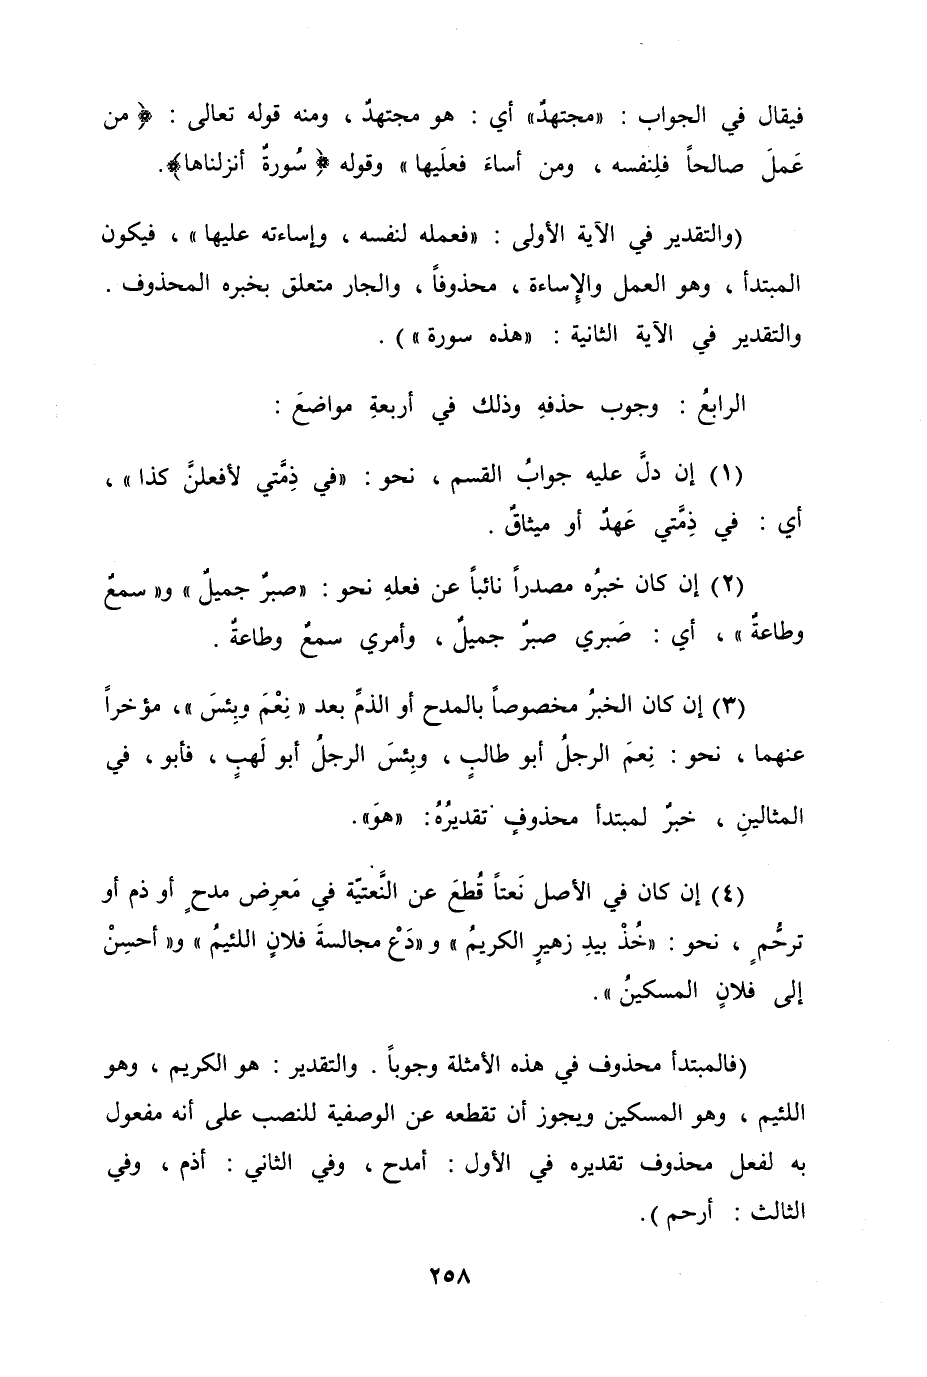 فيقال في الجواب : «مجتهدٌ» أي : هو مجتهدٌ ، ومنه قوله تعالى : ﴿ من
عَملَ صالحاً فلِنفسه ، ومن أساءَ فعلَيها » وقوله ﴿ سُورةٌ أنزلناها﴾.
(والتقدير في الآية الأولى : «فعمله لنفسه ، وإساءته عليها» ، فيكون
المبتدأ ، وهو العمل والإساءة ، محذوفاً ، والجار متعلق بخبره المحذوف .
والتقدير في الآية الثانية : «هذه سورة») .
الرابعُ : وجوب حذفهِ وذلك في أربعةِ مواضعَ :
(١) إن دلَّ عليه جوابُ القسم ، نحو : «في ذِمَّتي لأفعلنَّ كذا» ،
أي : في ذِمَّتي عَهدٌ أو ميثاقٌ .
(٢) إن كان خبرُه مصدراً نائباً عن فعلهِ نحو : «صبرٌ جميلٌ» و«سمعٌ
وطاعةٌ» ، أي : صَبري صبرٌ جميلٌ ، وأمري سمعٌ وطاعةٌ .
(٣) إن كان الخبرُ مخصوصاً بالمدح أو الذمِّ بعد «نِعْمَ وبِئسَ»، مؤخراً
عنهما ، نحو : نِعمَ الرجلُ أبو طالبٍ ، وبِئسَ الرجلُ أبو لَهبٍ ، فأبو ، في
المثالينِ ، خبرٌ لمبتدأ محذوفٍ تقديرُهُ: «هوَ».
(٤) إن كان في الأصل نَعتاً قُطعَ عن النَّعتيّة في مَعرِض مدحٍ أو ذم أو
ترحُّمٍ ، نحو : «خُذْ بيدِ زهيرٍ الكريمُ» و«دَعْ مجالسةَ فلانٍ اللئيمُ» و«أحسِنْ
إلى فلانٍ المسكينُ».
(فالمبتدأ محذوف في هذه الأمثلة وجوباً . والتقدير : هو الكريم ، وهو
اللئيم ، وهو المسكين ويجوز أن تقطعه عن الوصفية للنصب على أنه مفعول
به لفعل محذوف تقديره في الأول : أمدح ، وفي الثاني : أذم ، وفي
الثالث : أرحم).
٢٥٨